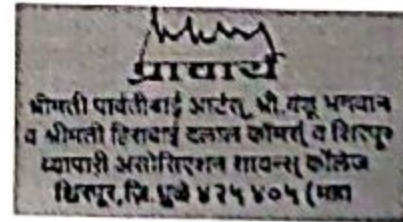 प्राचार्य
श्रीमती पार्वतीबाई आर्टस्, श्री. भगवान
व श्रीमती हिराबाई दलाल कॉमर्स व शिरपूर
व्यापारी असोसिएशन सायन्स् कॉलेज
शिरपूर, जि. धुळे ४२५ ४०५ (महा